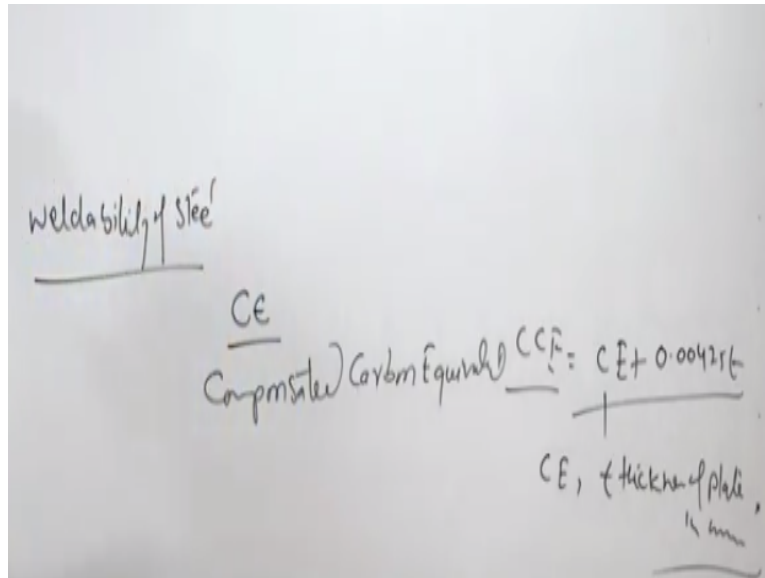 weldability of steel
CE
Compensated Carbon Equivalent CCE = CE + 0.00425t
CE, t thickness of plate,
in mm